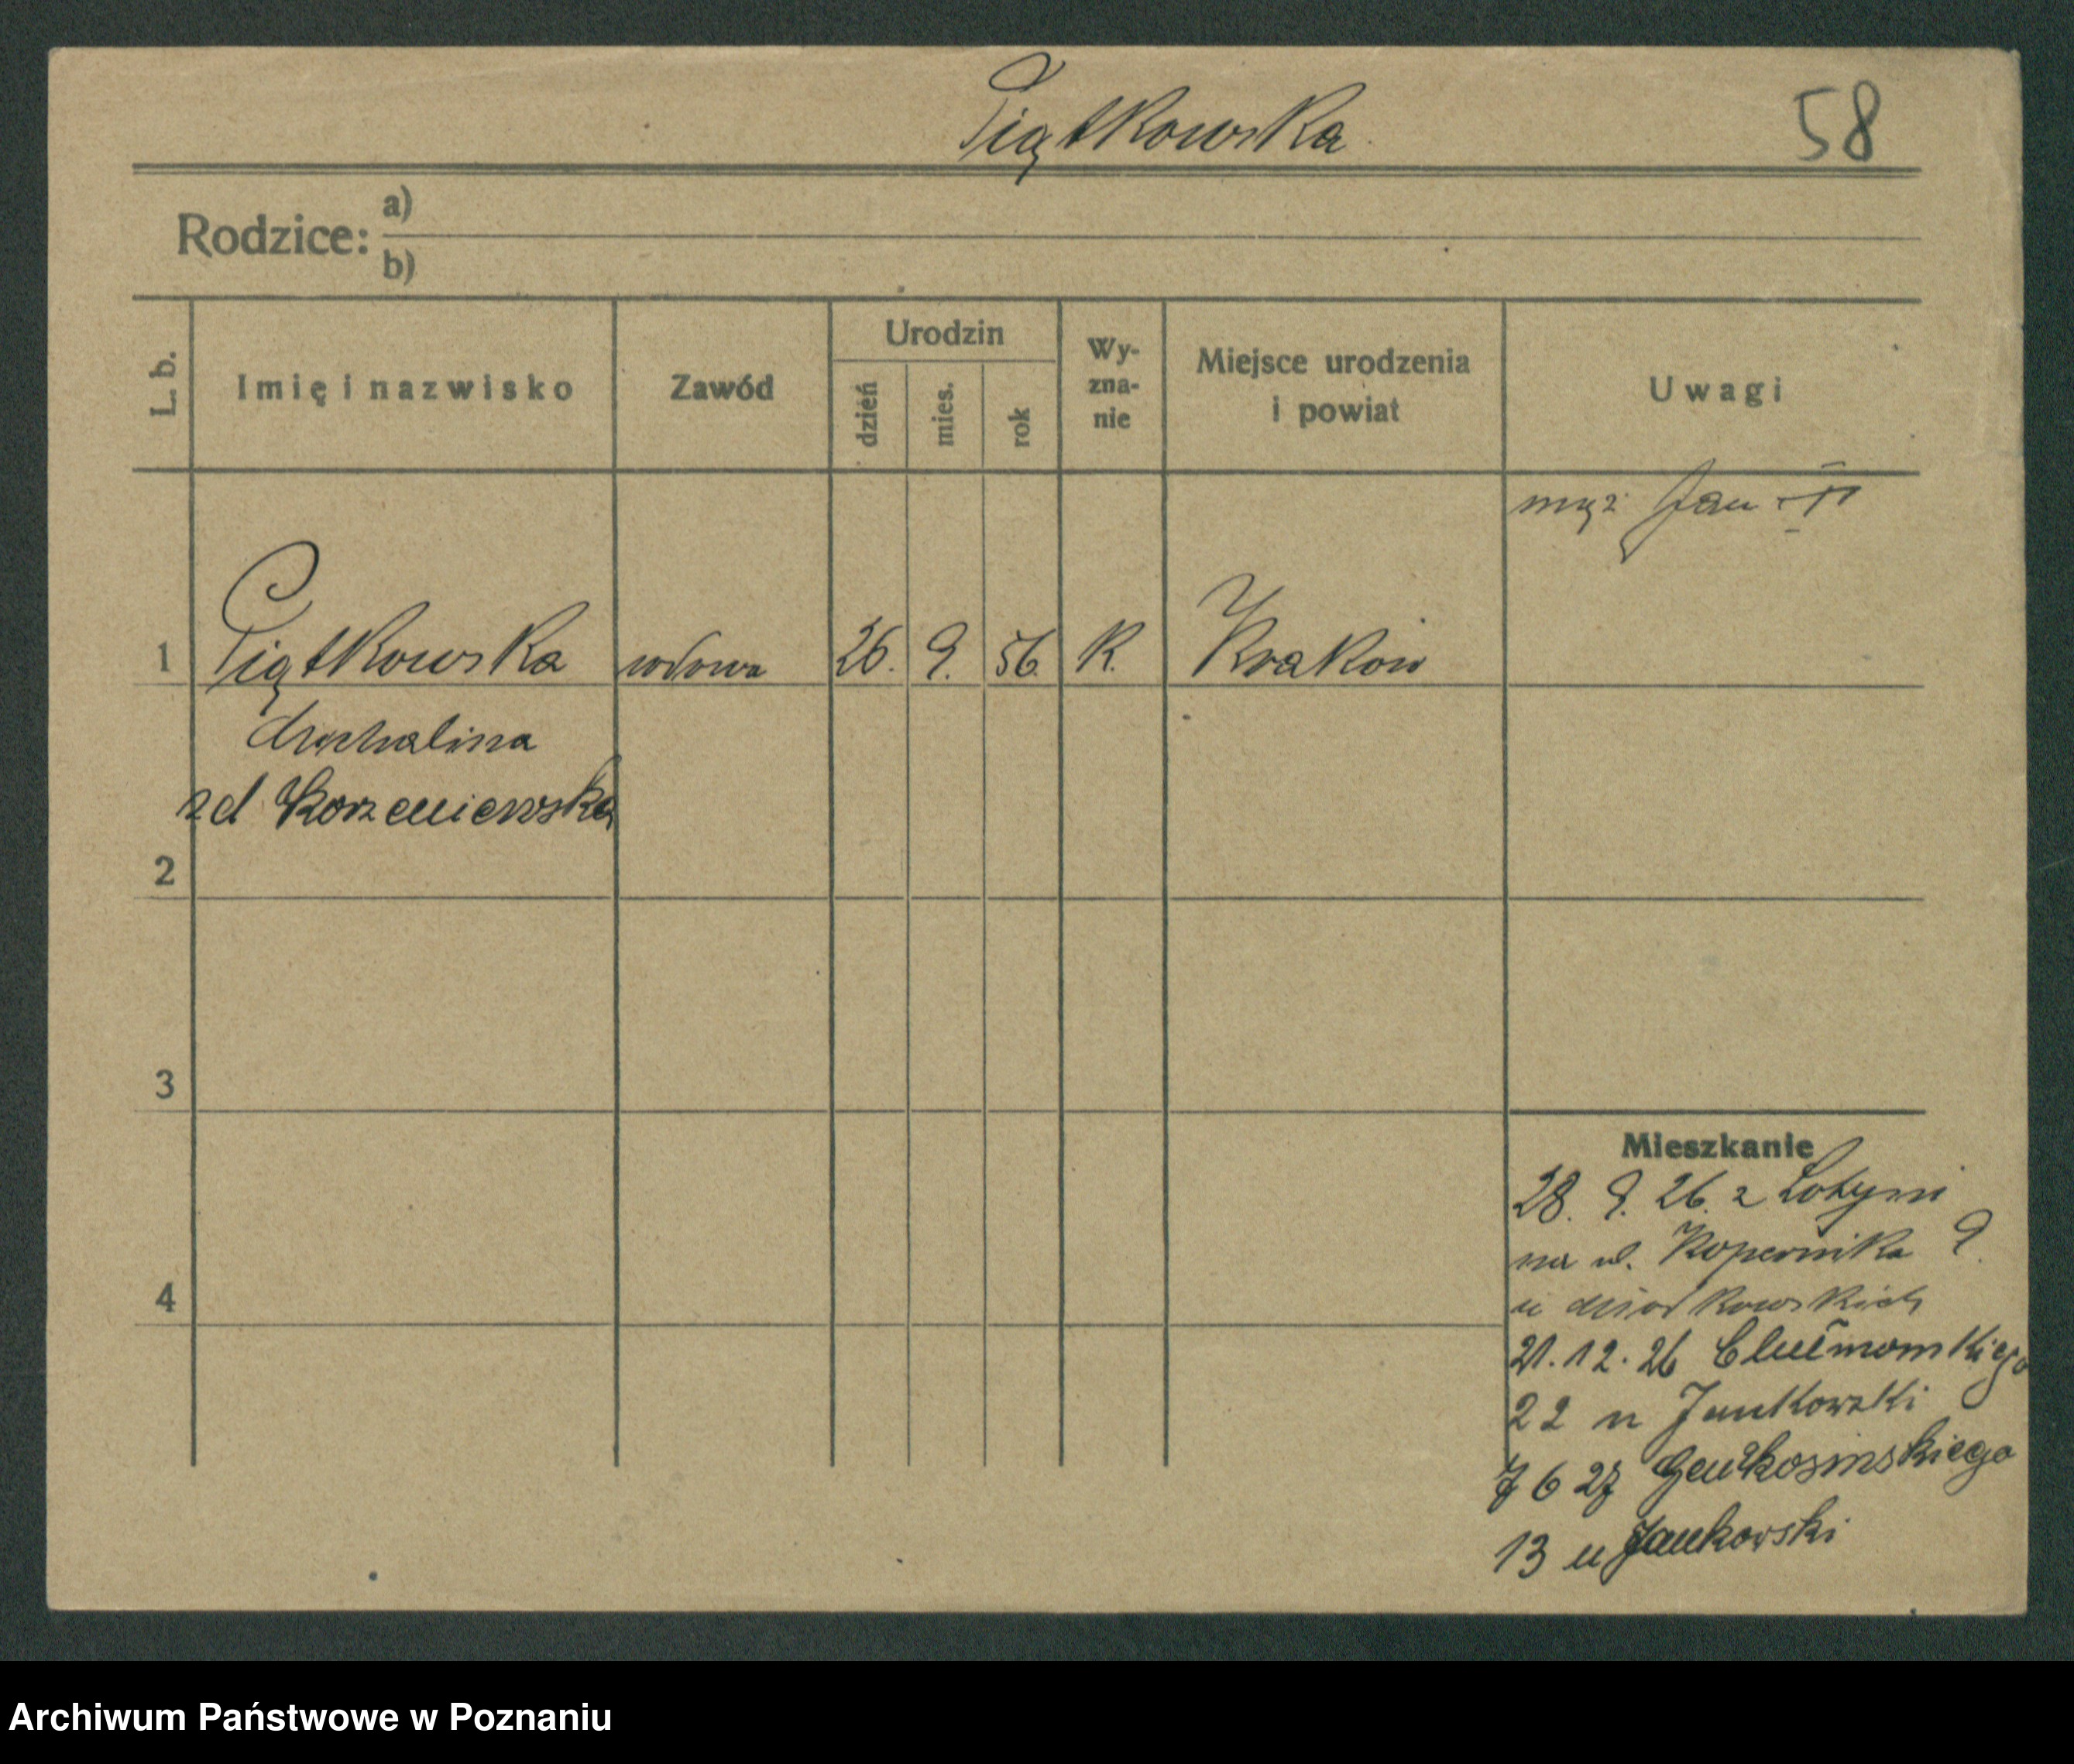 Piątkowska
58
Rodzice: a)
b)
L. b.
Imię i nazwisko
Zawód
Urodzin
dzień
mies.
rok
Wy-
zna-
nie
Miejsce urodzenia
i powiat
Uwagi
mąż Jan
1 Piątkowska wdowa 26. 9. 56. K. Kraków
zd Korzeniewska
2
3
4
Mieszkanie
28. 9. 26. z
na ul. Kopernika 9.
u
21.12.26
22 u Jankowski
7 6 27
13 u Jankowski
Archiwum Państwowe w Poznaniu